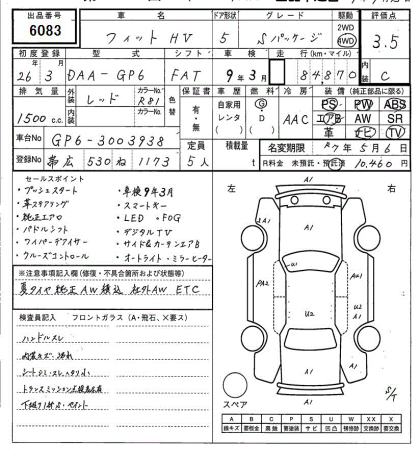 出品番号 車名 ドア形状 グレード 駆動 評価点
6083 フィット HV 5 Sパッケージ 2WD 4WD 3.5
初度登録 型式 シフト 車検 走行(km・マイル) 内装
26年3月 DAA-GP6 FAT 9年3月 84870 C
排気量 外装 レッド カラーNo. R81 色替 保証書 車歴 燃料 冷房 装備(純正部品に限る)
1500 c.c. 内装 カラーNo. 有・無 自家用 レンタ ( ) G・D AAC PS PW ABS
エアB AW SR
革 ナビ TV
車台No GP6-3003938 定員 積載量 名変期限 R7年5月6日
登録No 帯広 530 ね 1173 5人 t R料金 未預託・預託済 10,460円
セールスポイント
・プッシュスタート ・車検9年3月
・革ステアリング ・スマートキー
・純正エアロ ・LED・FOG
・パドルシフト ・デジタルTV
・ワイパーデアイサー ・サイド&カーテンエアB
・クルーズコントロール ・オートライト・ミラーヒーター
※注意事項記入欄(修復・不具合箇所および状態等)
夏タイヤ純正AW積込 社外AW ETC
検査員記入 フロントガラス(A・飛石、×要ス)
ハンドルスレ
内装キズ・汚れ
下廻り錆・ペイント
左 右
A1
2A1
A1
U1
PA2
U2
A1
A1
A1
スペア
S/T
A B C P S U W X XX X
線キズ 要板金 腐蝕 要塗装 サビ 凹凸 補修跡 要交換 交換済 要交換